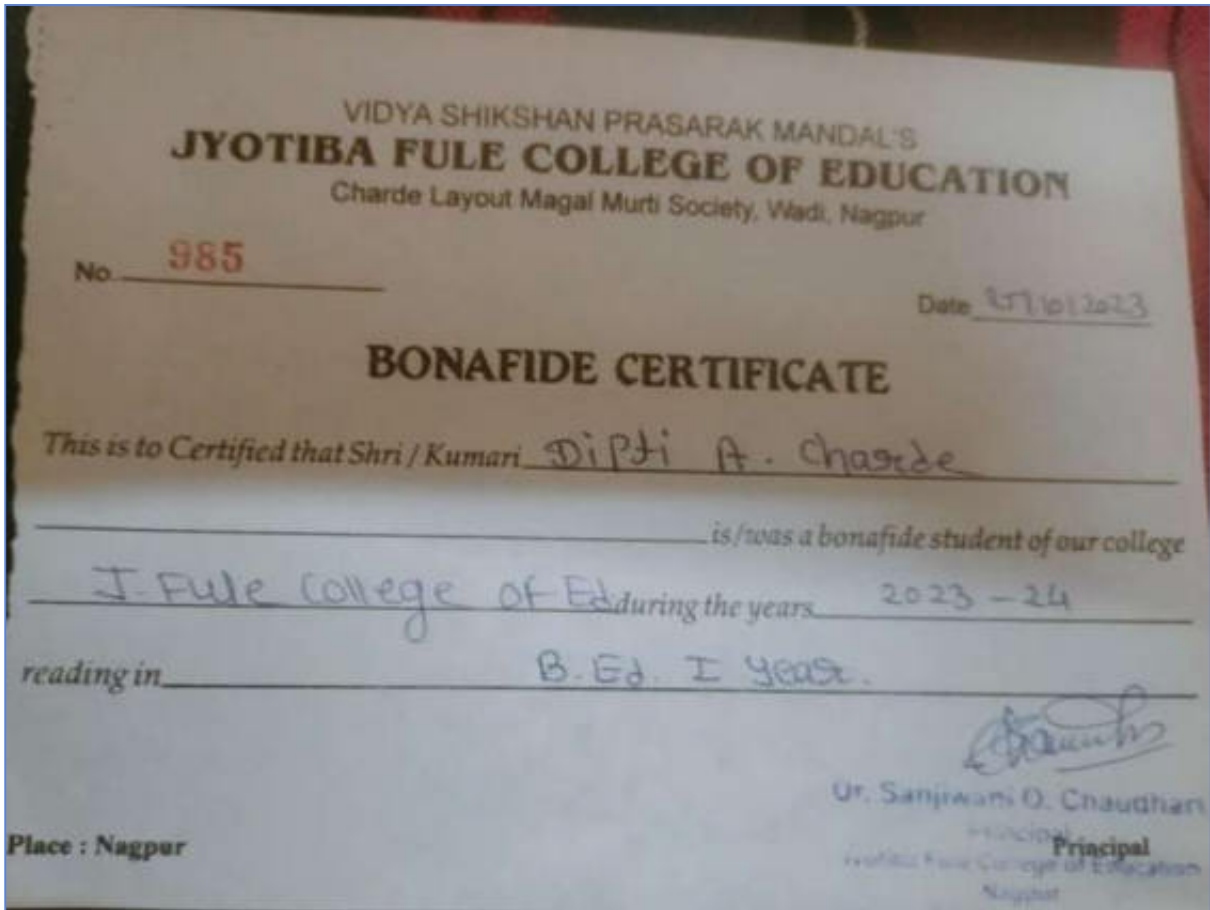 VIDYA SHIKSHAN PRASARAK MANDAL'S
JYOTIBA FULE COLLEGE OF EDUCATION
Charde Layout Magal Murti Society, Wadi, Nagpur
No. 985
Date /10/2023
BONAFIDE CERTIFICATE
This is to Certified that Shri / Kumari Dipti A. Charde
is/was a bonafide student of our college
J. Fule College of Ed during the years 2023-24
reading in B.Ed. I year.
Dr. Sanjiwani O. Chaudhari
Principal
Place : Nagpur Principal
Jyotiba Fule College of Education
Nagpur